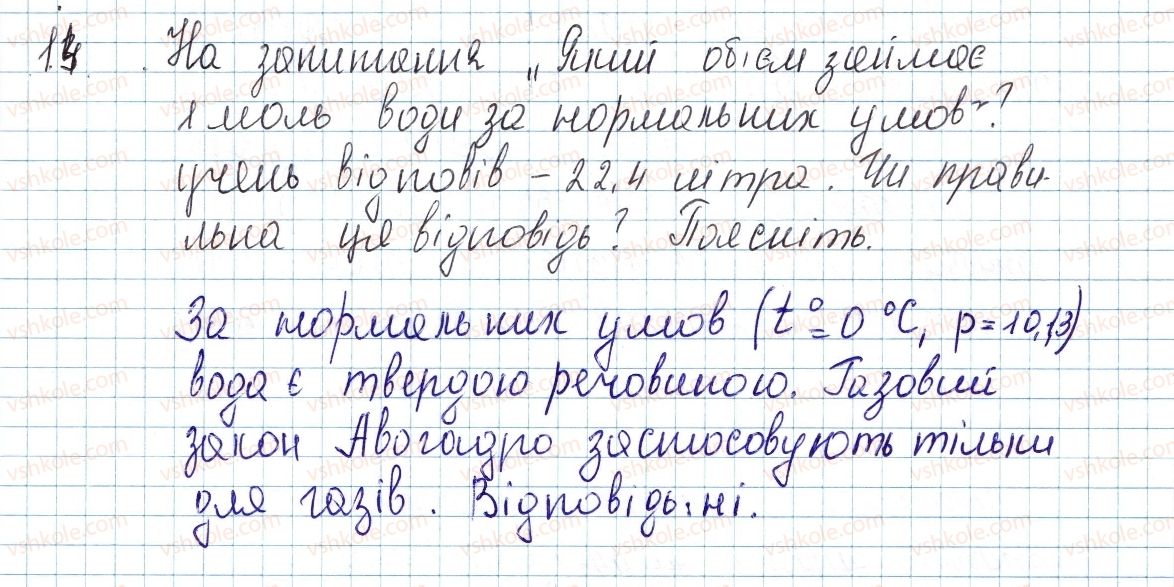 14. На запитання „Який об'єм займає
1 моль води за нормальних умов"?
учень відповів – 22,4 літра. Чи прави-
льна ця відповідь? Поясніть.
За нормальних умов (t°=0 °C, p=10,13)
вода є твердою речовиною. Газовий
закон Авогадро застосовують тільки
для газів. Відповідь: ні.